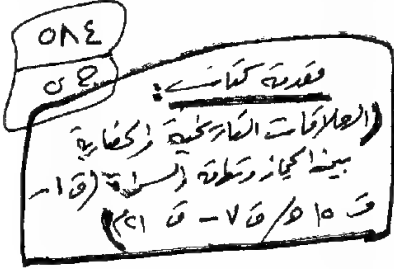 ٥٨٤
ص
مقدمة كتاب:
(العلاقات التاريخية والحضارية
بين الحجاز ومنطقة السراة (ق ١ -
ق ١٥ هـ / ق ٧ - ق ٢١م)